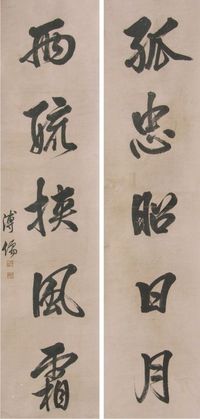 孤忠昭日月
两疏挟風霜
溥儒